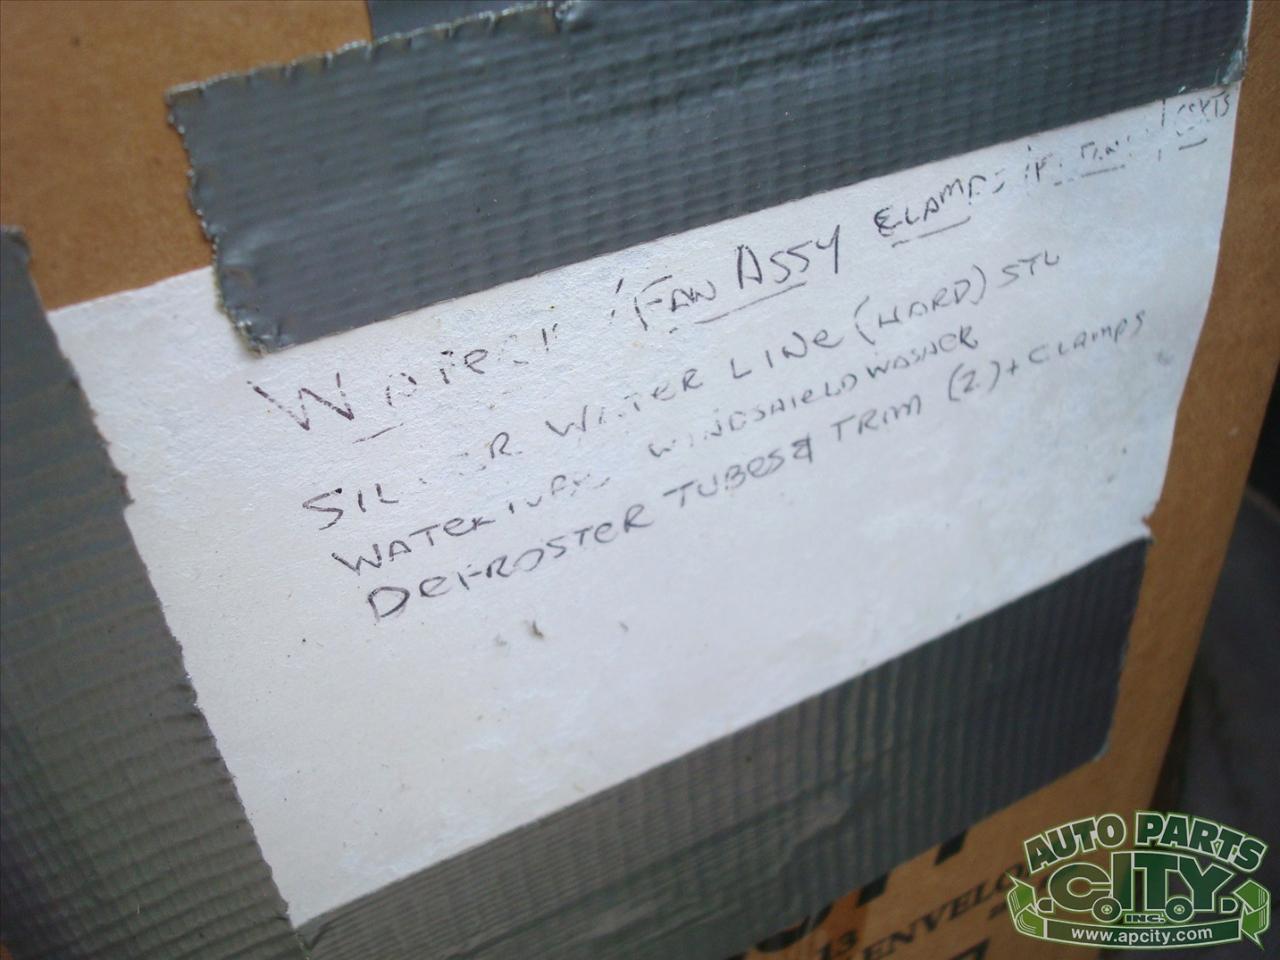 WATER FAN ASSY CLAMPS
WATER LINE (HARD) STL
WATER WINDSHIELD WASHER
DEFROSTER TUBES & TRIM (2) + CLAMPS
13
ENVELO
AUTO PARTS
C.I.T.Y.
INC.
www.apcity.com